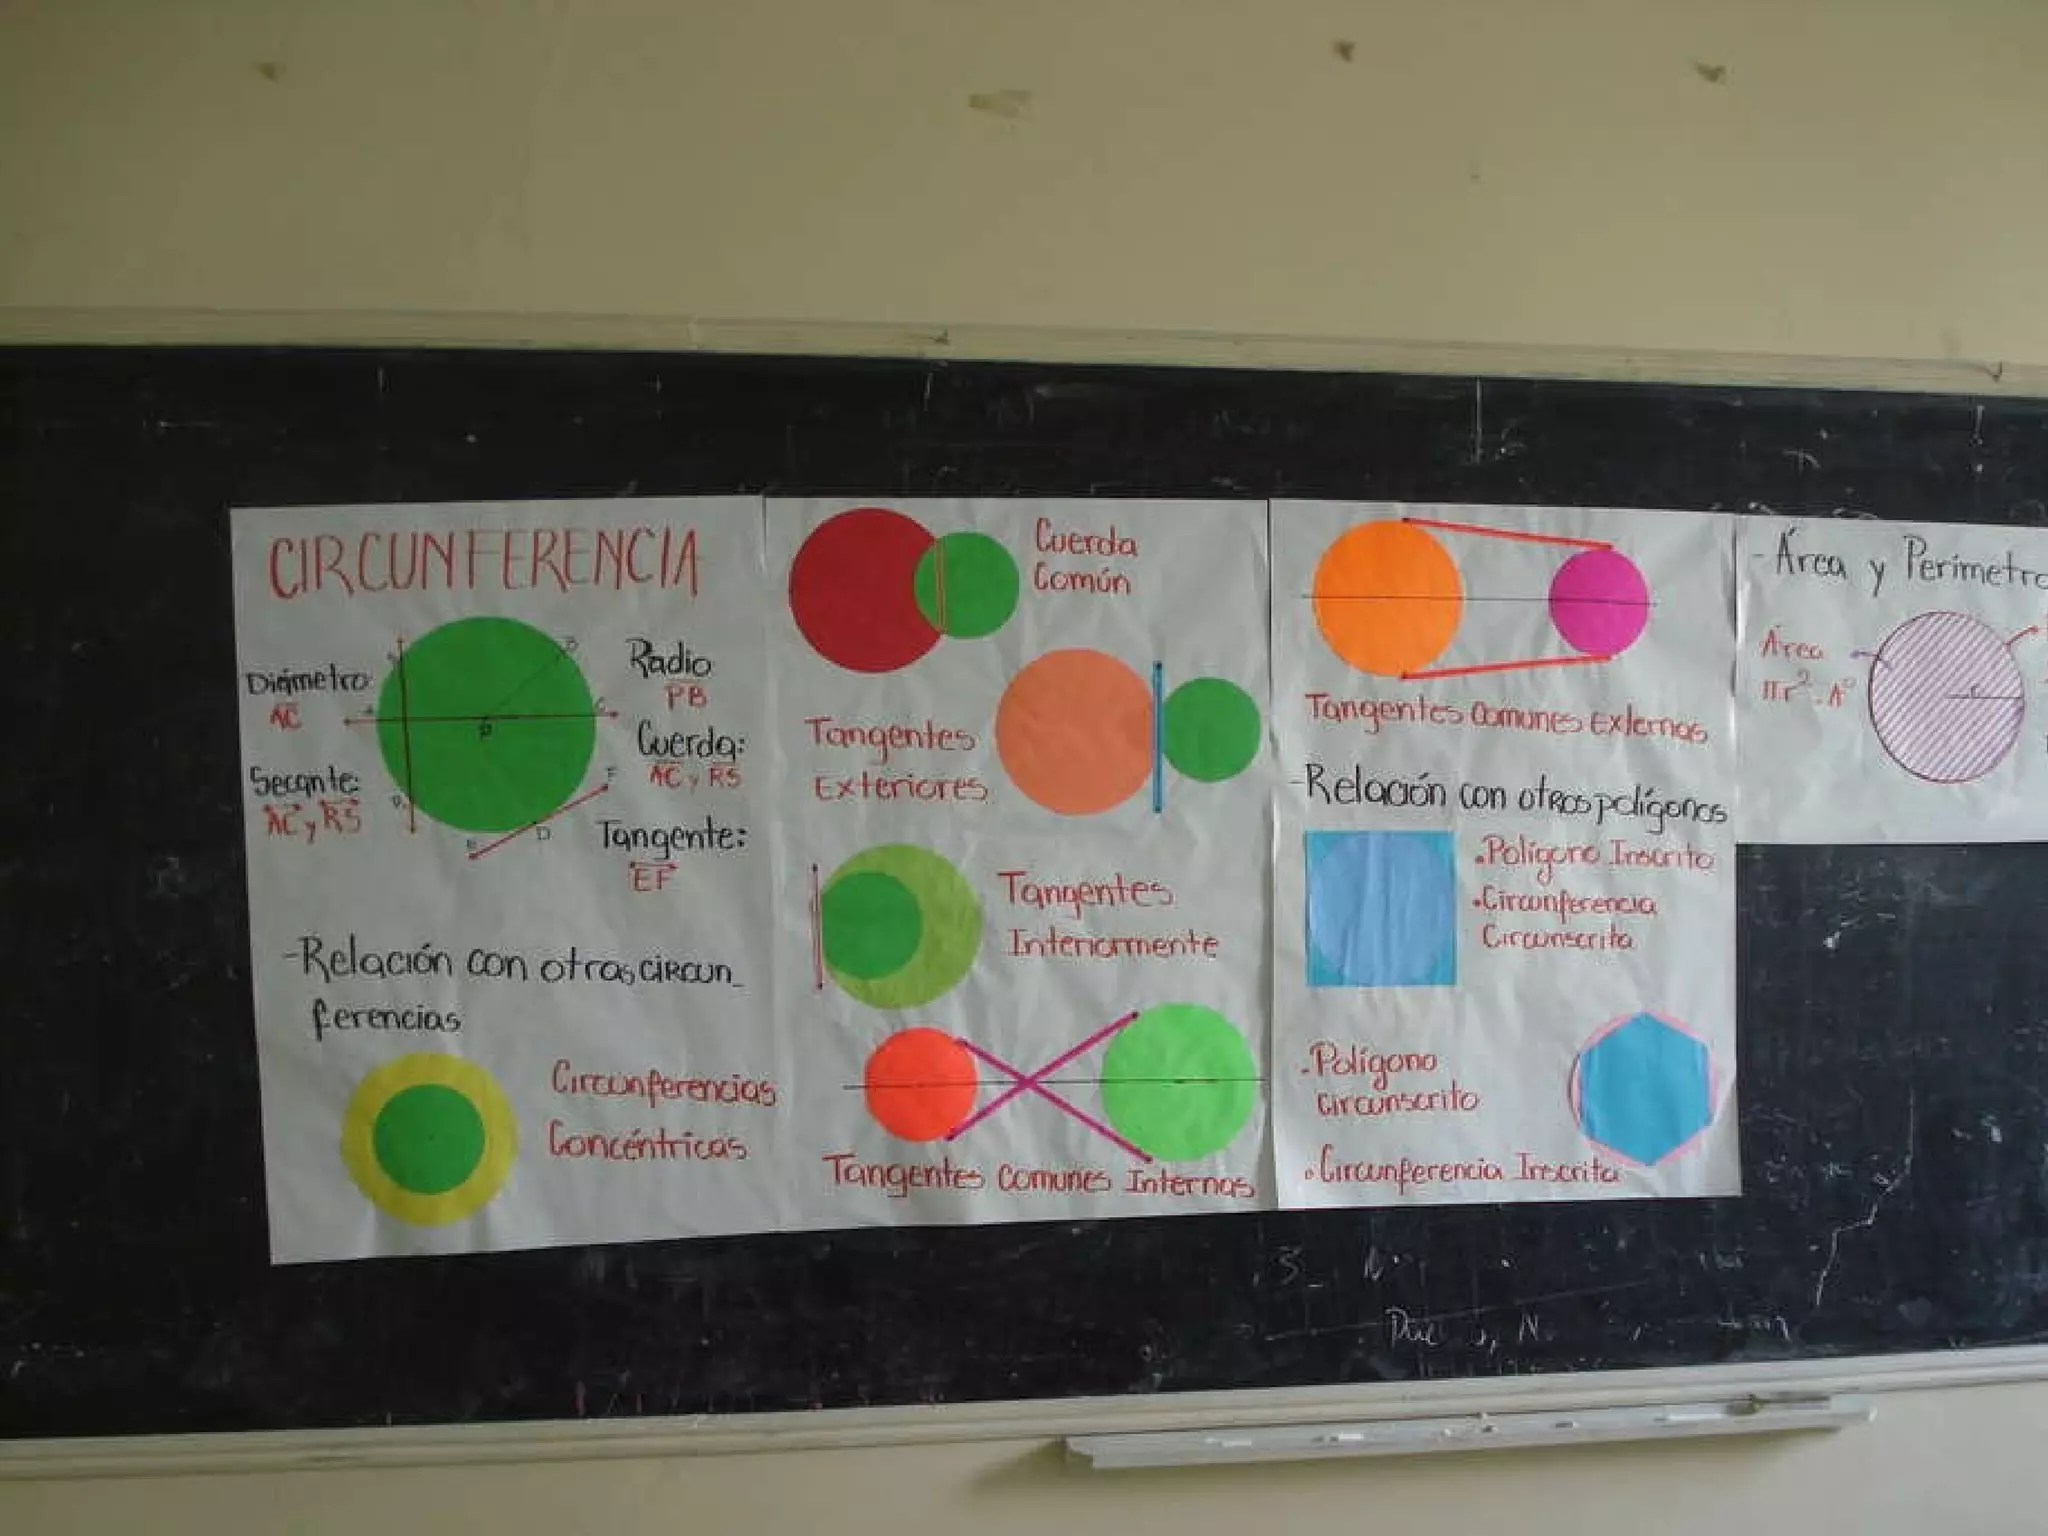 CIRCUNFERENCIA
Diámetro:
AC
Secante:
AC y RS
Radio
PB
Cuerda:
AC y RS
Tangente:
EF
A
C
B
P
D
E
F
-Relación con otras circun_
ferencias
Circunferencias
Concéntricas
Cuerda
Común
Tangentes
Exteriores
Tangentes
Interiormente
Tangentes Comunes Internas
Tangentes Comunes Externas
-Relación con otros polígonos
•Polígono Inscrito
•Circunferencia
Circunscrita
•Polígono
circunscrito
•Circunferencia Inscrita
-Área y Perímetro
Área
r